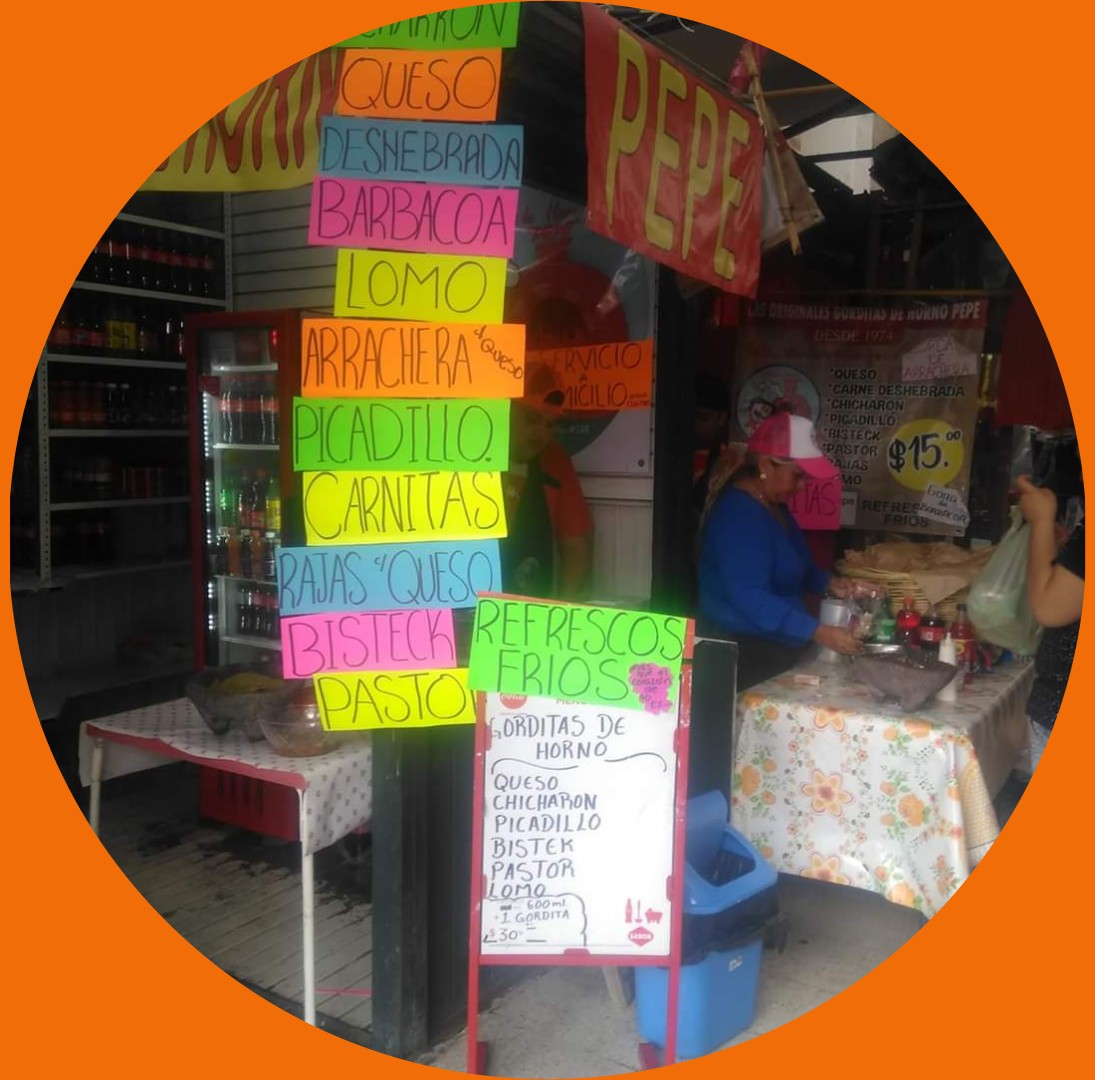 QUESO
DESHEBRADA
BARBACOA
LOMO
ARRACHERA c/QUESO
PICADILLO.
CARNITAS
RAJAS c/QUESO
BISTECK
PASTO
PEPE
LAS ORIGINALES GORDITAS DE HORNO PEPE
DESDE 1974
*QUESO
*CARNE DESHEBRADA
*CHICHARON
*PICADILLO
*BISTECK
*PASTOR
$15.00
FRIOS
REFRESCOS
FRIOS
GORDITAS DE
HORNO
QUESO
CHICHARON
PICADILLO
BISTEK
PASTOR
LOMO
600ml
+1 GORDITA
$30